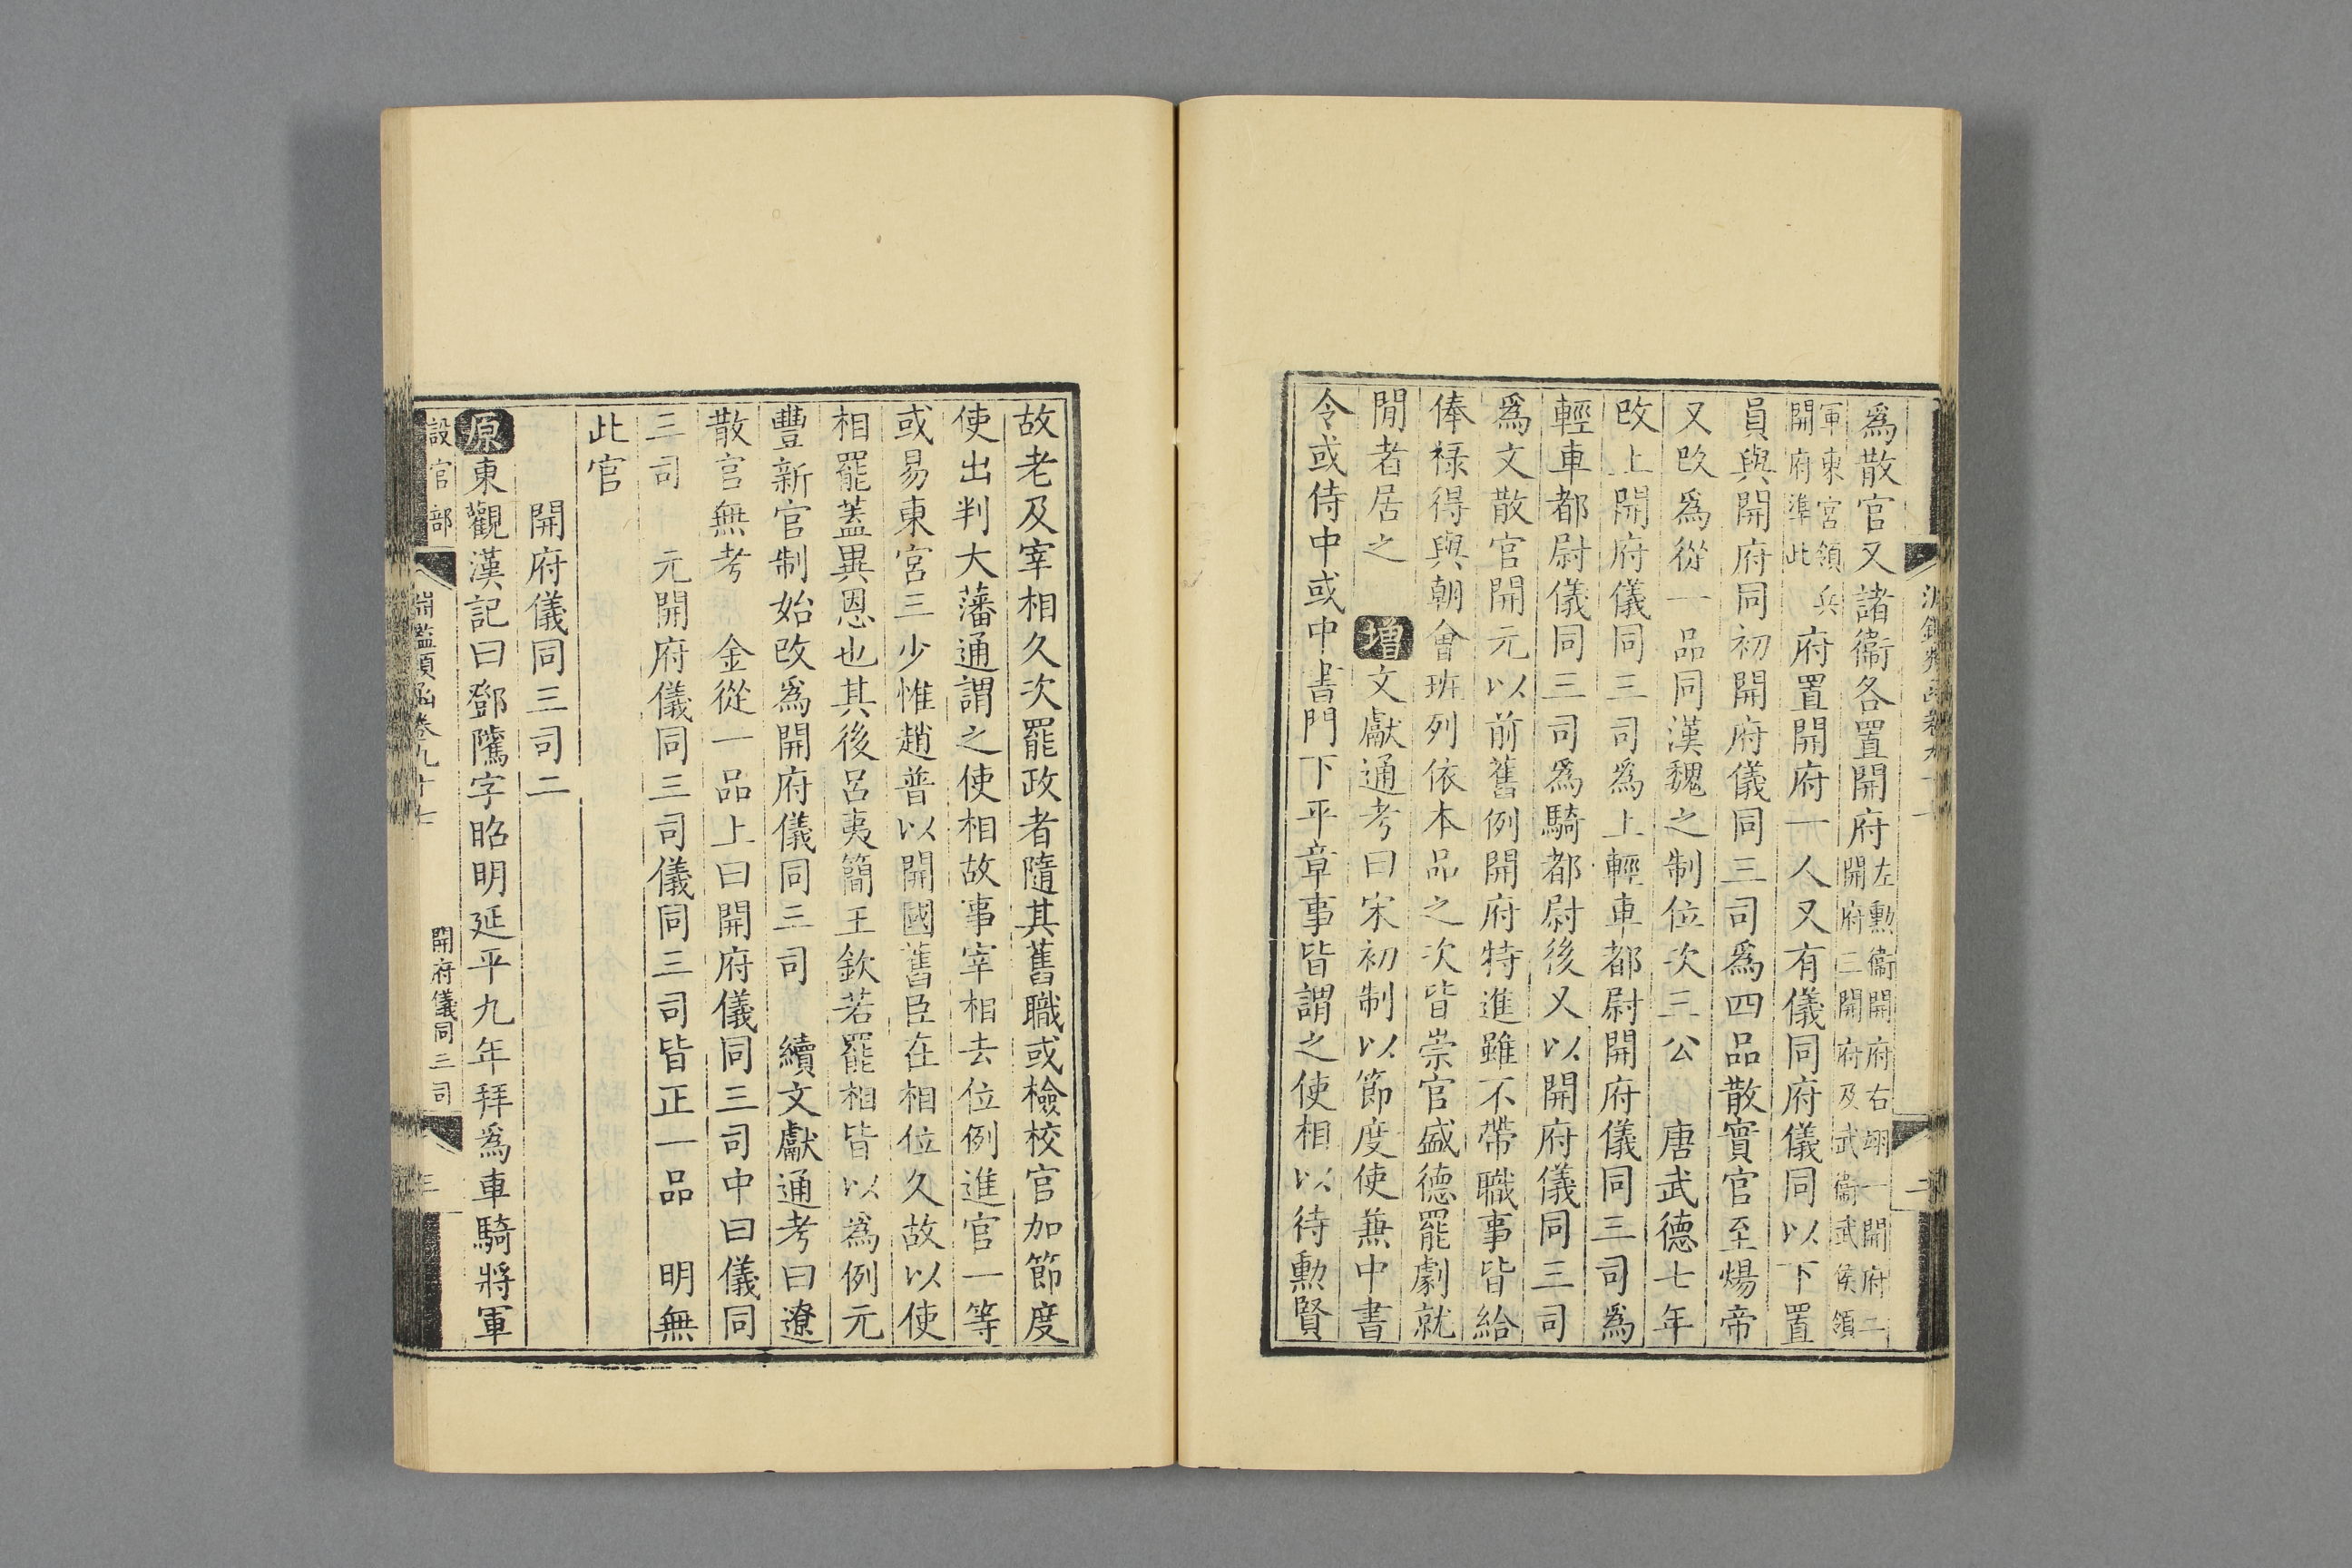 爲散官又諸衞各置開府左勳衞開府右翊一開府二開府三開府及武衞武侯領
軍東宮領兵開府準此府置開府一人又有儀同府儀同以下置
員與開府同初開府儀同三司爲四品散實官至煬帝
又改爲從一品同漢魏之制位次三公 唐武德七年
改上開府儀同三司爲上輕車都尉開府儀同三司爲
輕車都尉儀同三司爲騎都尉後又以開府儀同三司
爲文散官開元以前舊例開府特進雖不帶職事皆給
俸祿得與朝會班列依本品之次皆崇官盛德罷劇就
閒者居之 增文獻通考曰宋初制以節度使兼中書
令或侍中或中書門下平章事皆謂之使相以待勳賢
故老及宰相久次罷政者隨其舊職或檢校官加節度
使出判大藩通謂之使相故事宰相去位例進官一等
或易東宮三少惟趙普以開國舊臣在相位久故以使
相罷蓋異恩也其後呂夷簡王欽若罷相皆以爲例元
豐新官制始改爲開府儀同三司 續文獻通考曰遼
散官無考 金從一品上曰開府儀同三司中曰儀同
三司 元開府儀同三司儀同三司皆正一品 明無
此官
開府儀同三司二
原東觀漢記曰鄧隲字昭明延平九年拜爲車騎將軍
設官部 淵鑑類函卷九十七 開府儀同三司 三